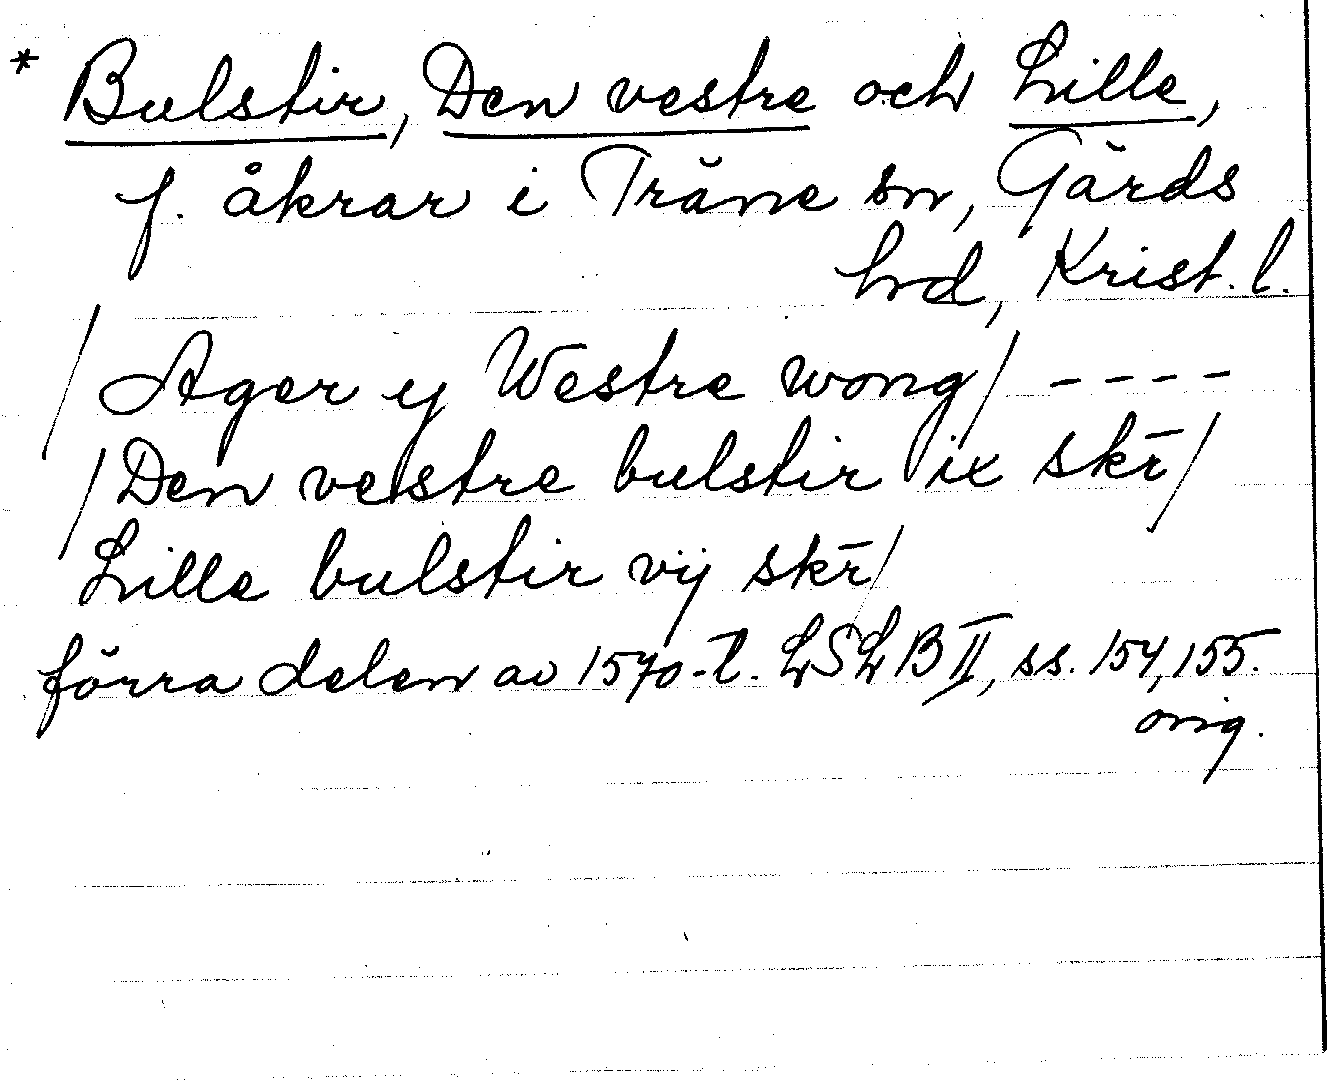 * Bulstir, Den vestre och Lille,
f. åkrar i Träne sn, Gärds
hd, Krist. l.
/Ager ij Westre wong/ ----
/Den vestre bulstir ix skr̄/
Lille bulstir vij skr̄/
förra delen av 1570-t. LSLB II, ss. 154, 155.
orig.